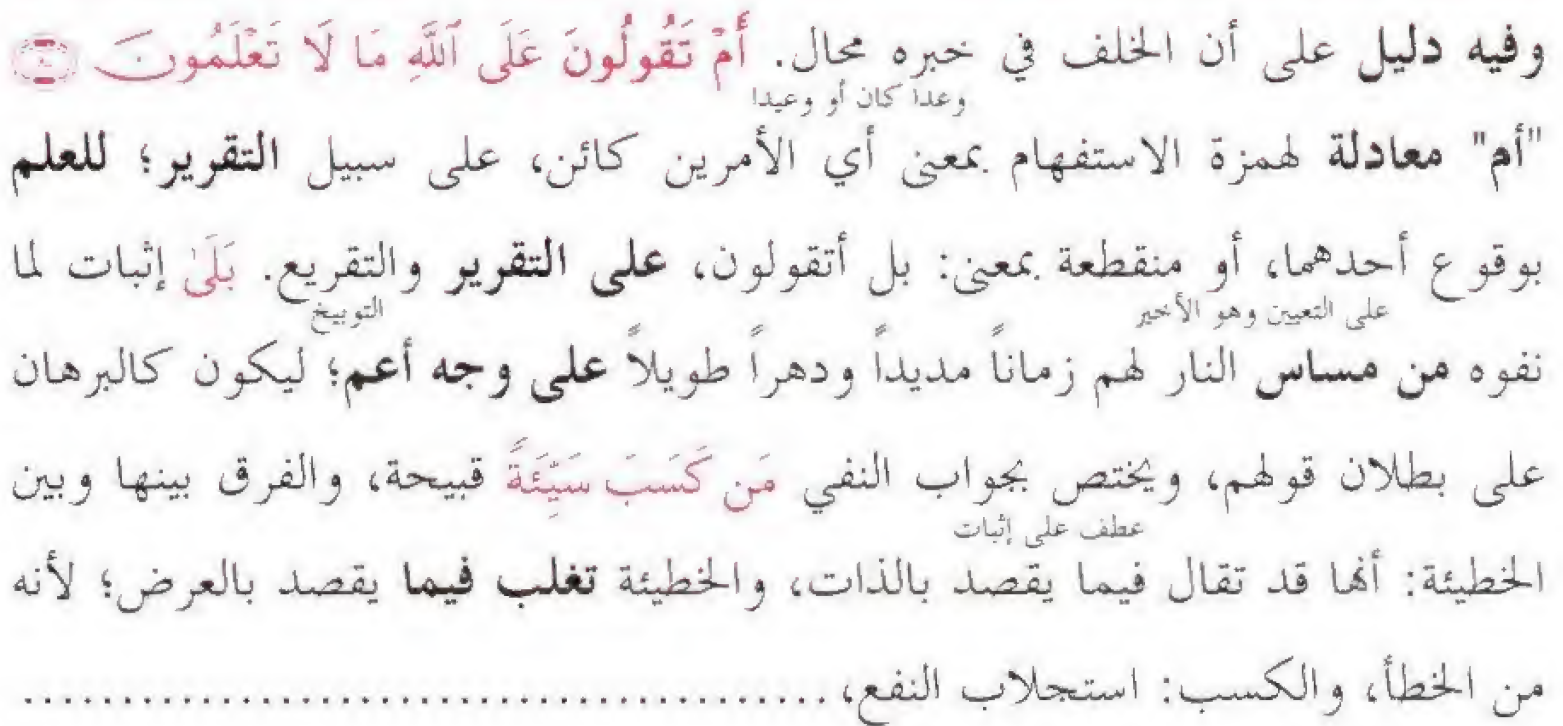 وفيه دليل على أن الخلف في خبره محال. أَمْ تَقُولُونَ عَلَى ٱللَّهِ مَا لَا تَعْلَمُونَ
وعدا كان أو وعيدا
"أم" معادلة لهمزة الاستفهام بمعنى أي الأمرين كائن، على سبيل التقرير؛ للعلم
بوقوع أحدهما، أو منقطعة بمعنى: بل أتقولون، على التقرير والتقريع. بَلَىٰ إثبات لما
على التعيين وهو الأخير التوبيخ
نفوه من مساس النار لهم زماناً مديداً ودهراً طويلاً على وجه أعم؛ ليكون كالبرهان
على بطلان قولهم، ويختص بجواب النفي مَن كَسَبَ سَيِّئَةً قبيحة، والفرق بينها وبين
عطف على إثبات
الخطيئة: أنها قد تقال فيما يقصد بالذات، والخطيئة تغلب فيما يقصد بالعرض؛ لأنه
من الخطأ، والكسب: استجلاب النفع، ........................................